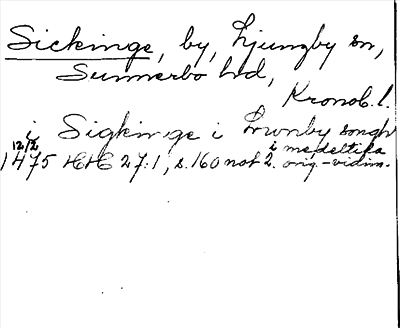 Sickinge, by, Ljungby sn,
Sunnerbo hd,
Kronob. l.
i Sigkinge i
12/2 i medeltida
1475 HH 27:1, s. 160 not 2. orig.-vidim.